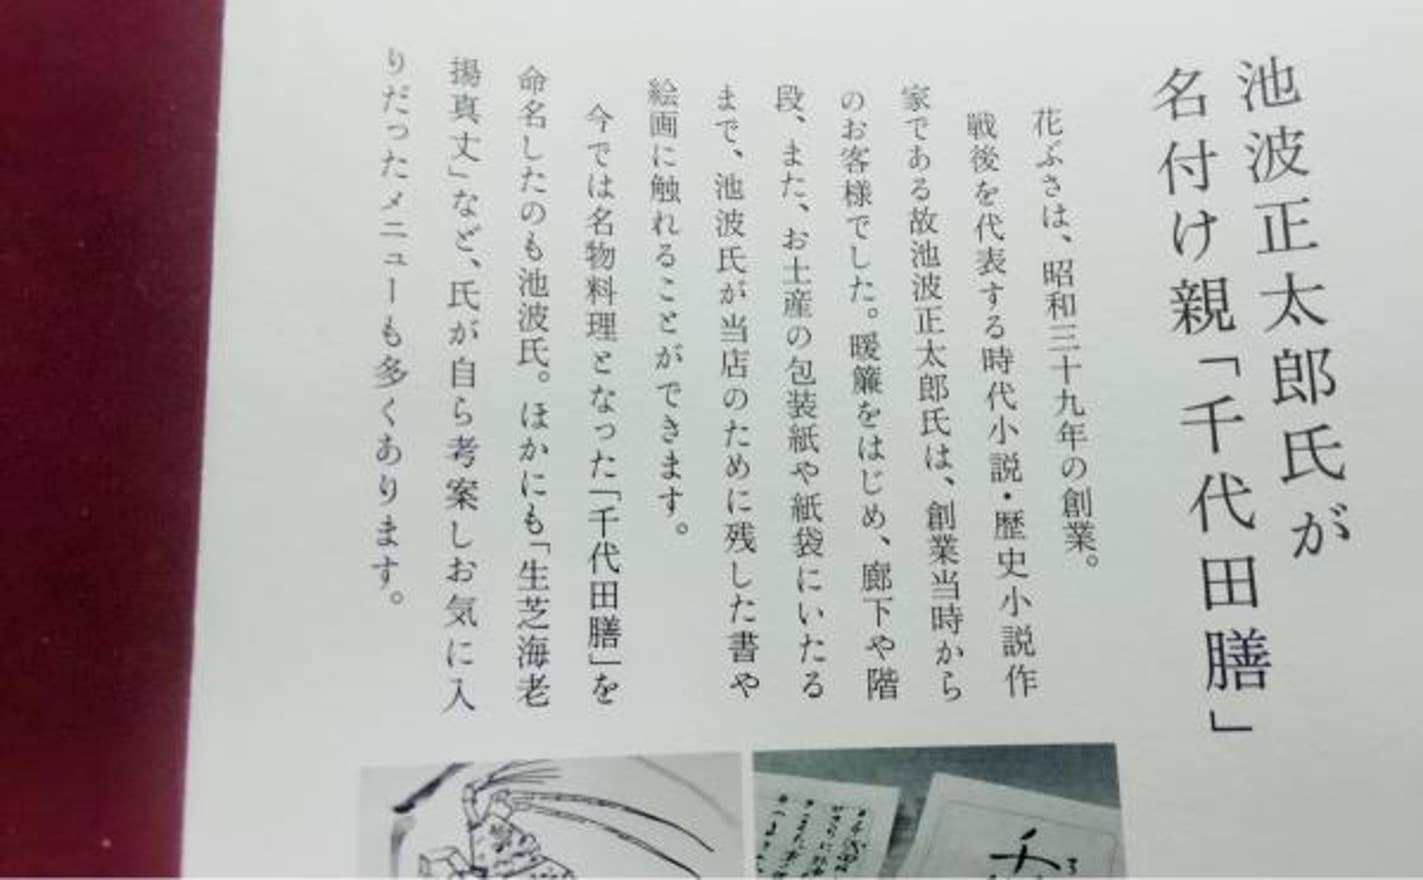 池波正太郎氏が
名付け親「千代田膳」
花ぶさは、昭和三十九年の創業。
戦後を代表する時代小説・歴史小説作
家である故池波正太郎氏は、創業当時から
のお客様でした。暖簾をはじめ、廊下や階
段、また、お土産の包装紙や紙袋にいたる
まで、池波氏が当店のために残した書や
絵画に触れることができます。
今では名物料理となった「千代田膳」を
命名したのも池波氏。ほかにも「生芝海老
揚真丈」など、氏が自ら考案しお気に入
りだったメニューも多くあります。